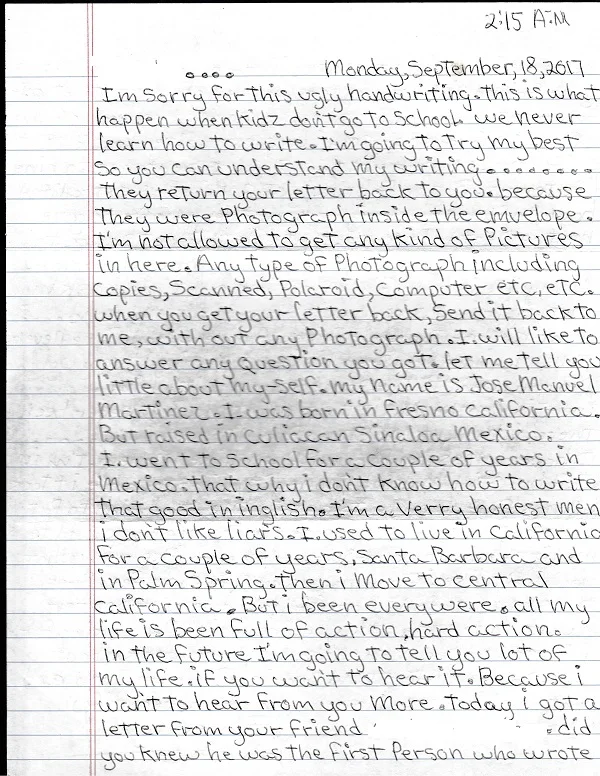 2:15 A.M
Monday, September, 18, 2017
Im Sorry for this ugly handwriting. this is what
happen when kidz don't go to School. we never
learn how to write. I'm going to try my best
So you can understand my writing........
they return your letter back to you. because
they were Photograph inside the emvelope.
I'm not allowed to get any kind of Pictures
in here. Any type of Photograph including
Copies, Scanned, Polaroid, Computer etc, etc.
when you get your letter back, Send it back to
me, with out any Photograph. I. will like to
answer any question you got. let me tell you
little about my-self. my name is Jose Manuel
Martinez. I. was born in fresno California.
But raised in Culiacan Sinaloa Mexico.
I. went to School for a couple of years in
Mexico. that why i don't know how to write
that good in inglish. I'm a Verry honest men
i don't like liars. I. used to live in California
for a couple of years, Santa Barbara and
in Palm Spring. then i Move to central
California. But i been everywere. all my
life is been full of action, hard action.
in the future I'm going to tell you lot of
my life. if you want to hear it. Because i
want to hear from you More. today i got a
letter from your friend . did
you knew he was the first Person who wrote